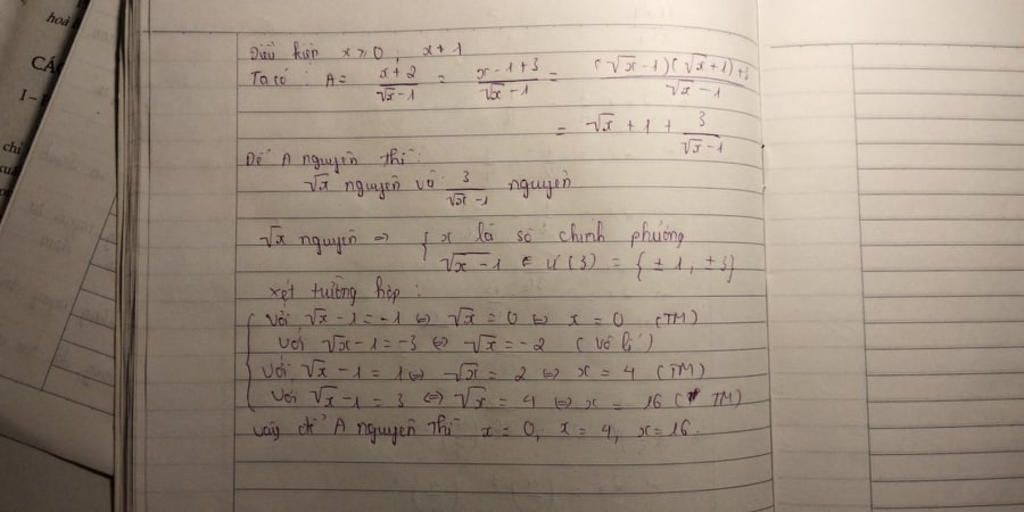 hoá
CÁ
I -
chi
Điều kiện x ≥ 0, x ≠ 1
Ta có: A = \frac{x+2}{\sqrt{x}-1} = \frac{x-1+3}{\sqrt{x}-1} = \frac{(\sqrt{x}-1)(\sqrt{x}+1)+3}{\sqrt{x}-1}
= \sqrt{x} + 1 + \frac{3}{\sqrt{x}-1}
Để A nguyên thì:
\sqrt{x} nguyên và \frac{3}{\sqrt{x}-1} nguyên
\sqrt{x} nguyên => { x là số chính phương
\sqrt{x}-1 ∈ Ư(3) = {±1, ±3}
xét trường hợp:
với \sqrt{x}-1 = -1 ⇔ \sqrt{x} = 0 ⇔ x = 0 (TM)
với \sqrt{x}-1 = -3 ⇔ \sqrt{x} = -2 (vô lí)
với \sqrt{x}-1 = 1 ⇔ \sqrt{x} = 2 ⇔ x = 4 (TM)
với \sqrt{x}-1 = 3 ⇔ \sqrt{x} = 4 ⇔ x = 16 (TM)
vậy để A nguyên thì x = 0, x = 4, x = 16.